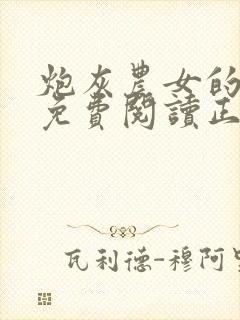 炮灰農女的
免費閱讀正
瓦利德-穆阿